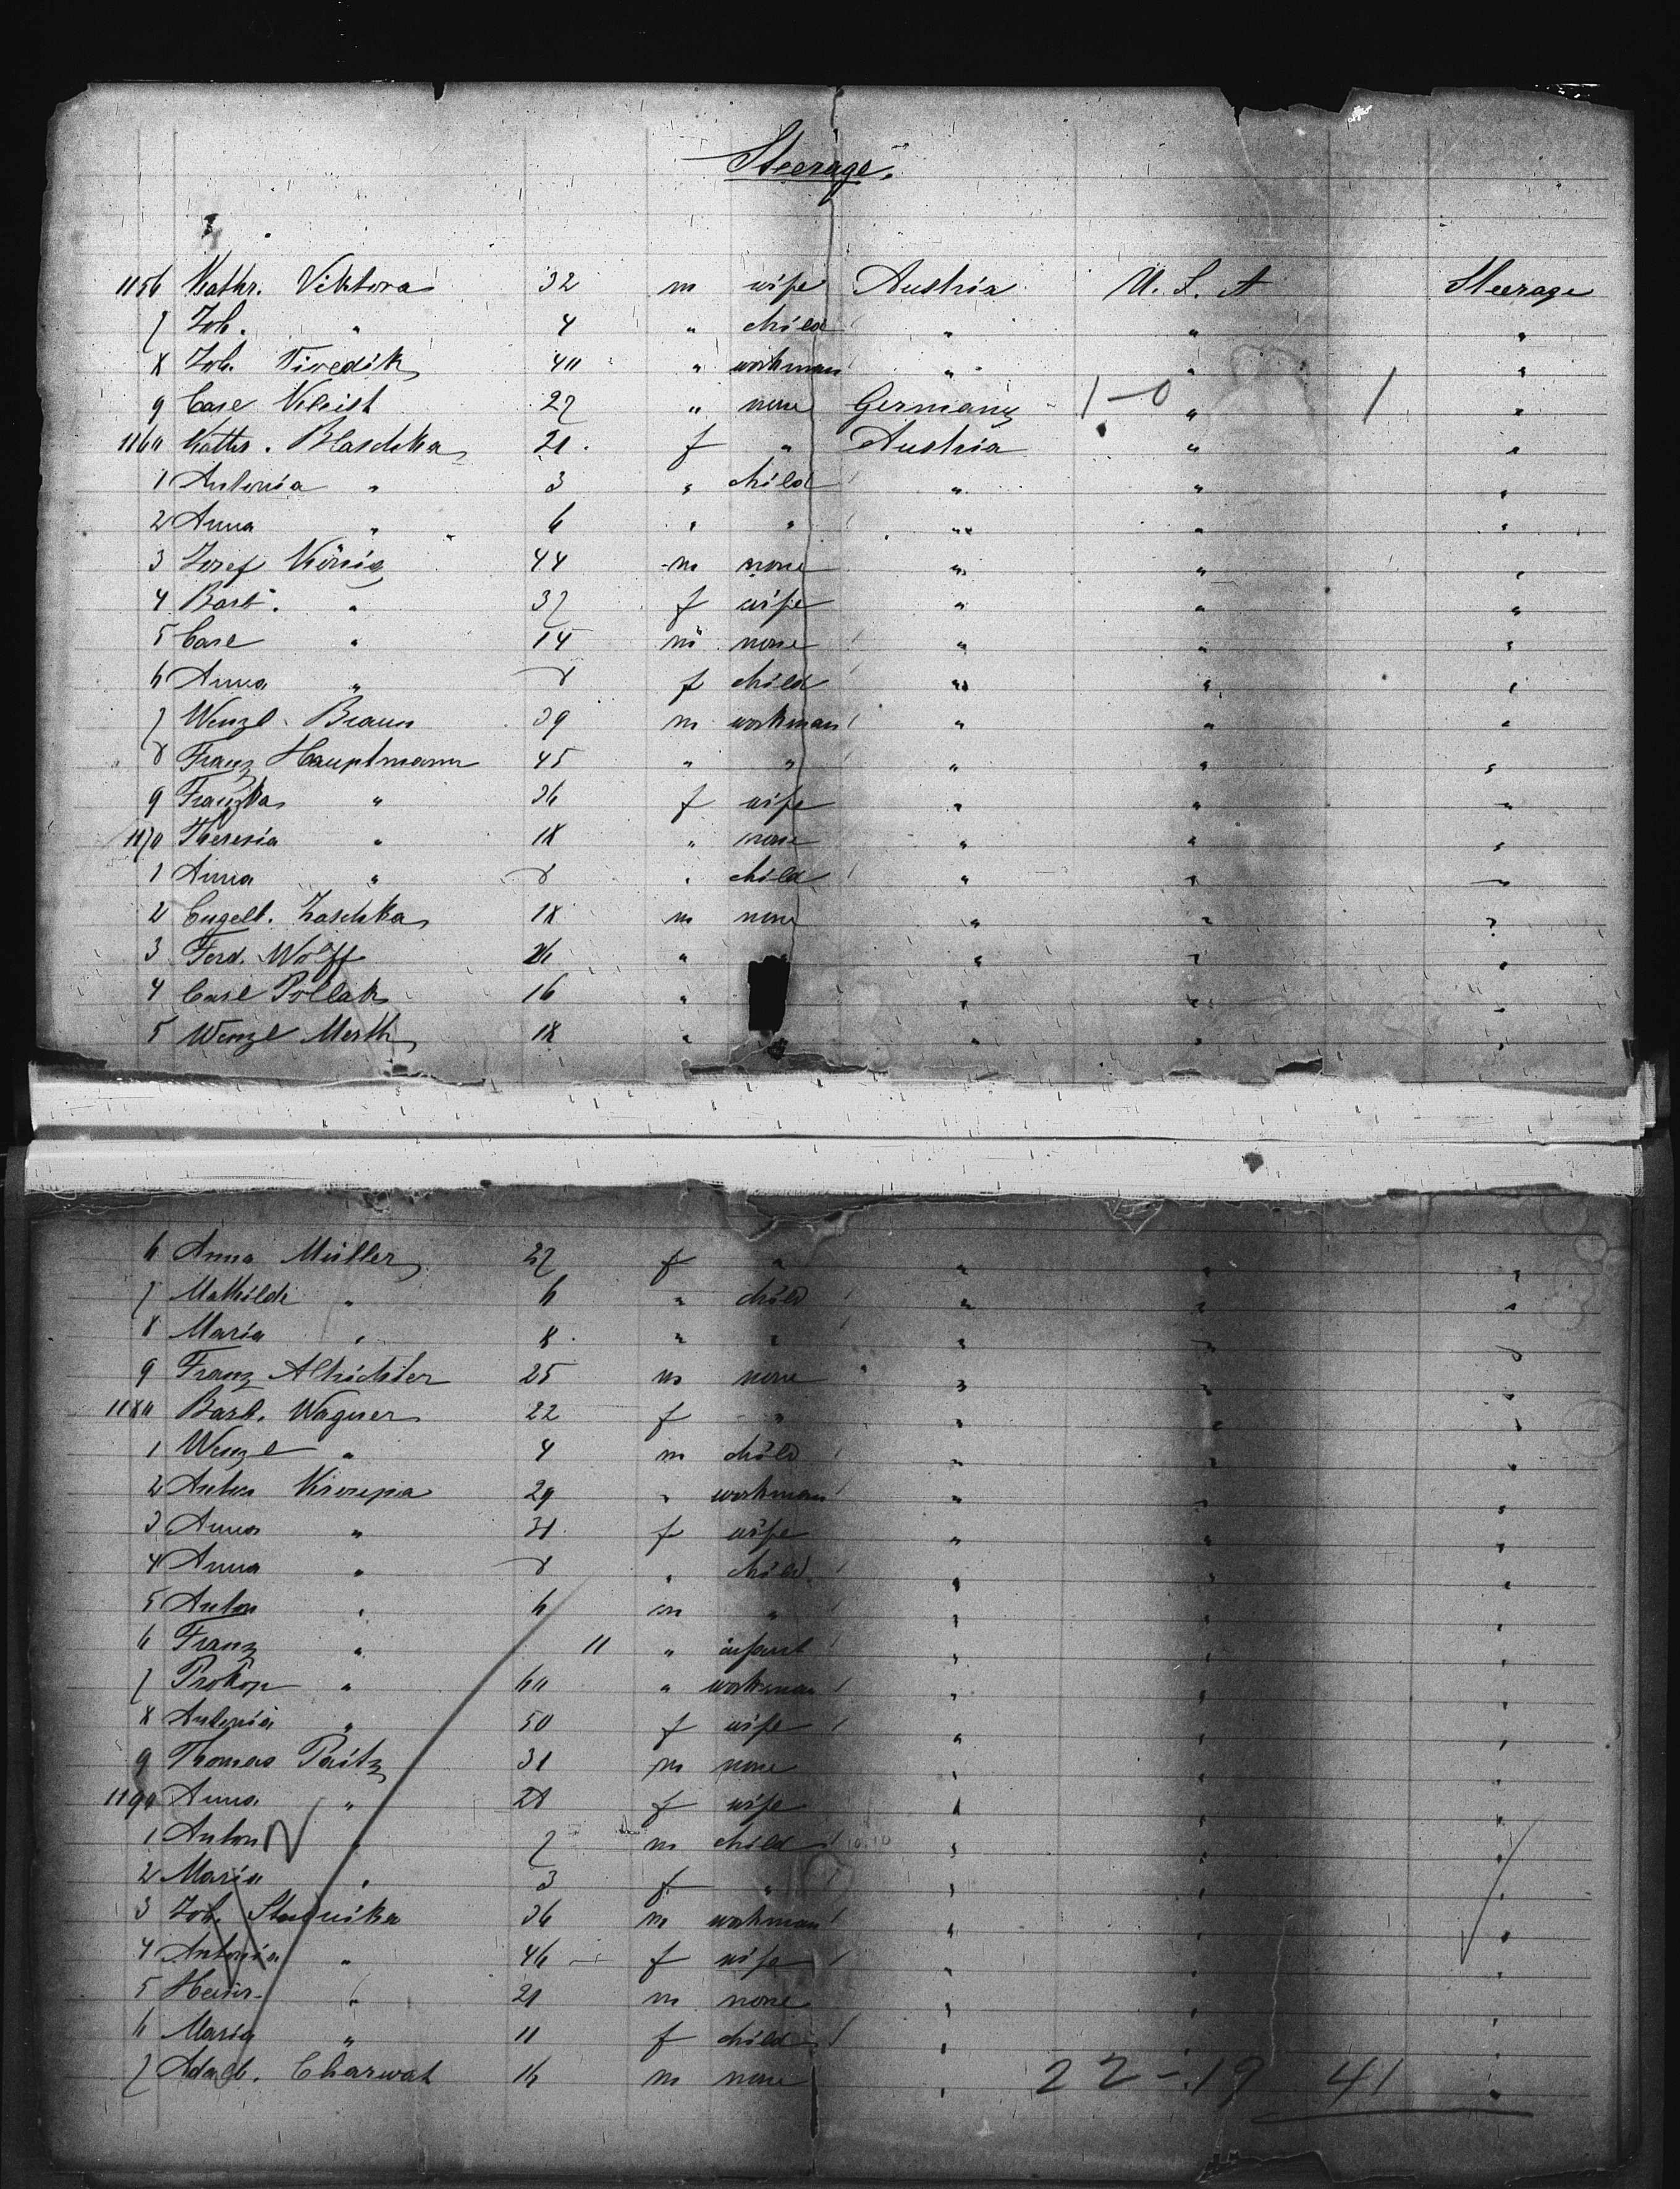 Steerage.
1156 Kathr. Viktora 32 m wife Austria U. S. A Steerage
7 Joh. " 4 " child " " "
8 Joh. Tivedik 40 " workman " " "
9 Carl Kleist 27 " none Germany 1-0 " 1 "
1160 Kathr. Blaschka 21 f " Austria " "
1 Antonia " 3 " child " " "
2 Anna " 6 " " " " "
3 Josef König 44 m none " " "
4 Barb. " 37 f wife " " "
5 Carl " 14 m none " " "
6 Anna " 8 f child " " "
7 Wenzl Braun 39 m workman " " "
8 Franz Hauptmann 45 " " " " "
9 Franzka " 36 f wife " " "
1170 Theresia " 18 " none " " "
1 Anna " 8 " child " " "
2 Engelb. Zaschka 18 m none " " "
3 Ferd. Wolff 26 " " " "
4 Carl Pollak 16 " " " "
5 Wenzl Merth 18 " " " "
6 Anna Müller 27 f " " " "
7 Mathilde " 6 " child " " "
8 Maria " 8 " " " " "
9 Franz Altrichter 25 m none " " "
1180 Barb. Wagner 22 f " " " "
1 Wenzl " 4 m child " " "
2 Anton Kroupa 29 " workman " " "
3 Anna " 31 f wife " " "
4 Anna " 8 " child " " "
5 Anton " 6 m " " " "
6 Franz " 11 " infant " " "
7 Prokop " 60 " workman " " "
8 Antonia " 50 f wife " " "
9 Thomas Paitz 31 m none " " "
1190 Anna " 28 f wife " " "
1 Anton " 7 m child " " "
2 Maria " 3 f " " " "
3 Joh. Studnika 36 m workman " " "
4 Antonia " 46 f wife " " "
5 Heinr. " 21 m none " " "
6 Maria " 11 f child " " "
7 Adalb. Charwat 16 m none " 22-19 41 "